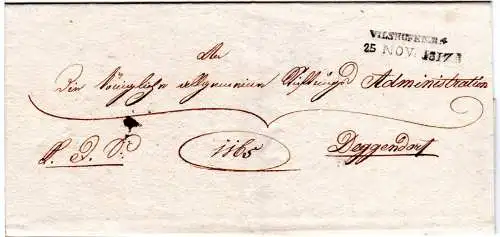 VILSHOFEN.R.4
25 NOV. 1817
An
Die Königliche allgemeine Stiftungs Administration
R. D. S.
1165
Deggendorf